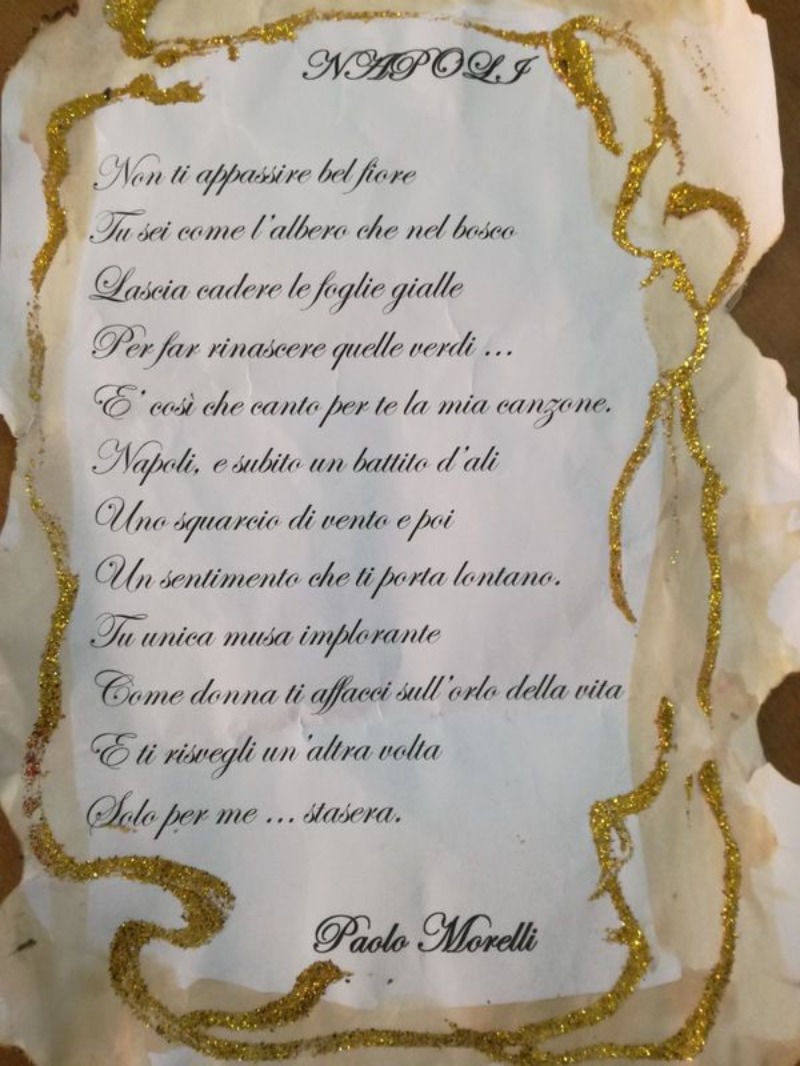 NAPOLI
Non ti appassire bel fiore
Tu sei come l'albero che nel bosco
Lascia cadere le foglie gialle
Per far rinascere quelle verdi ...
E' così che canto per te la mia canzone.
Napoli, e subito un battito d'ali
Uno squarcio di vento e poi
Un sentimento che ti porta lontano.
Tu unica musa implorante
Come donna ti affacci sull'orlo della vita
E ti risvegli un'altra volta
Solo per me ... stasera.
Paolo Morelli